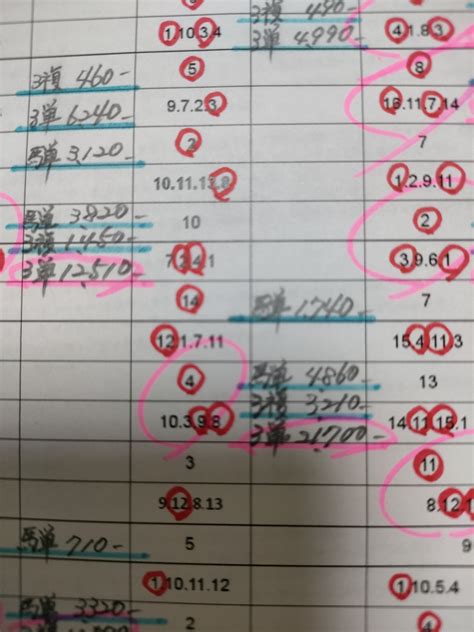 3複 490-
①10.③4 3単 4,990- ④1.8③
3複 460- ⑤ ⑧
3単 6,240- 9.7.2.③ 11.⑦14
馬単 3,120- ② 7
10.11. ①2.9.⑪
馬単 3,820- 10 ②
3複 1,450-
3単 12,510- 7. ③9.6.①
⑭ 馬単 1,740- 7
⑫1.7.11 15.④⑪3
④ 馬単 4,860- 13
10.3.⑨⑧ 3複 3,210- 14.⑪⑮1
3単 21,700-
3 ⑪
9.⑫8.13 8.⑫
馬単 710- 5 9
①10.11.12 ①10.5.4
馬単 3320- 2 ④